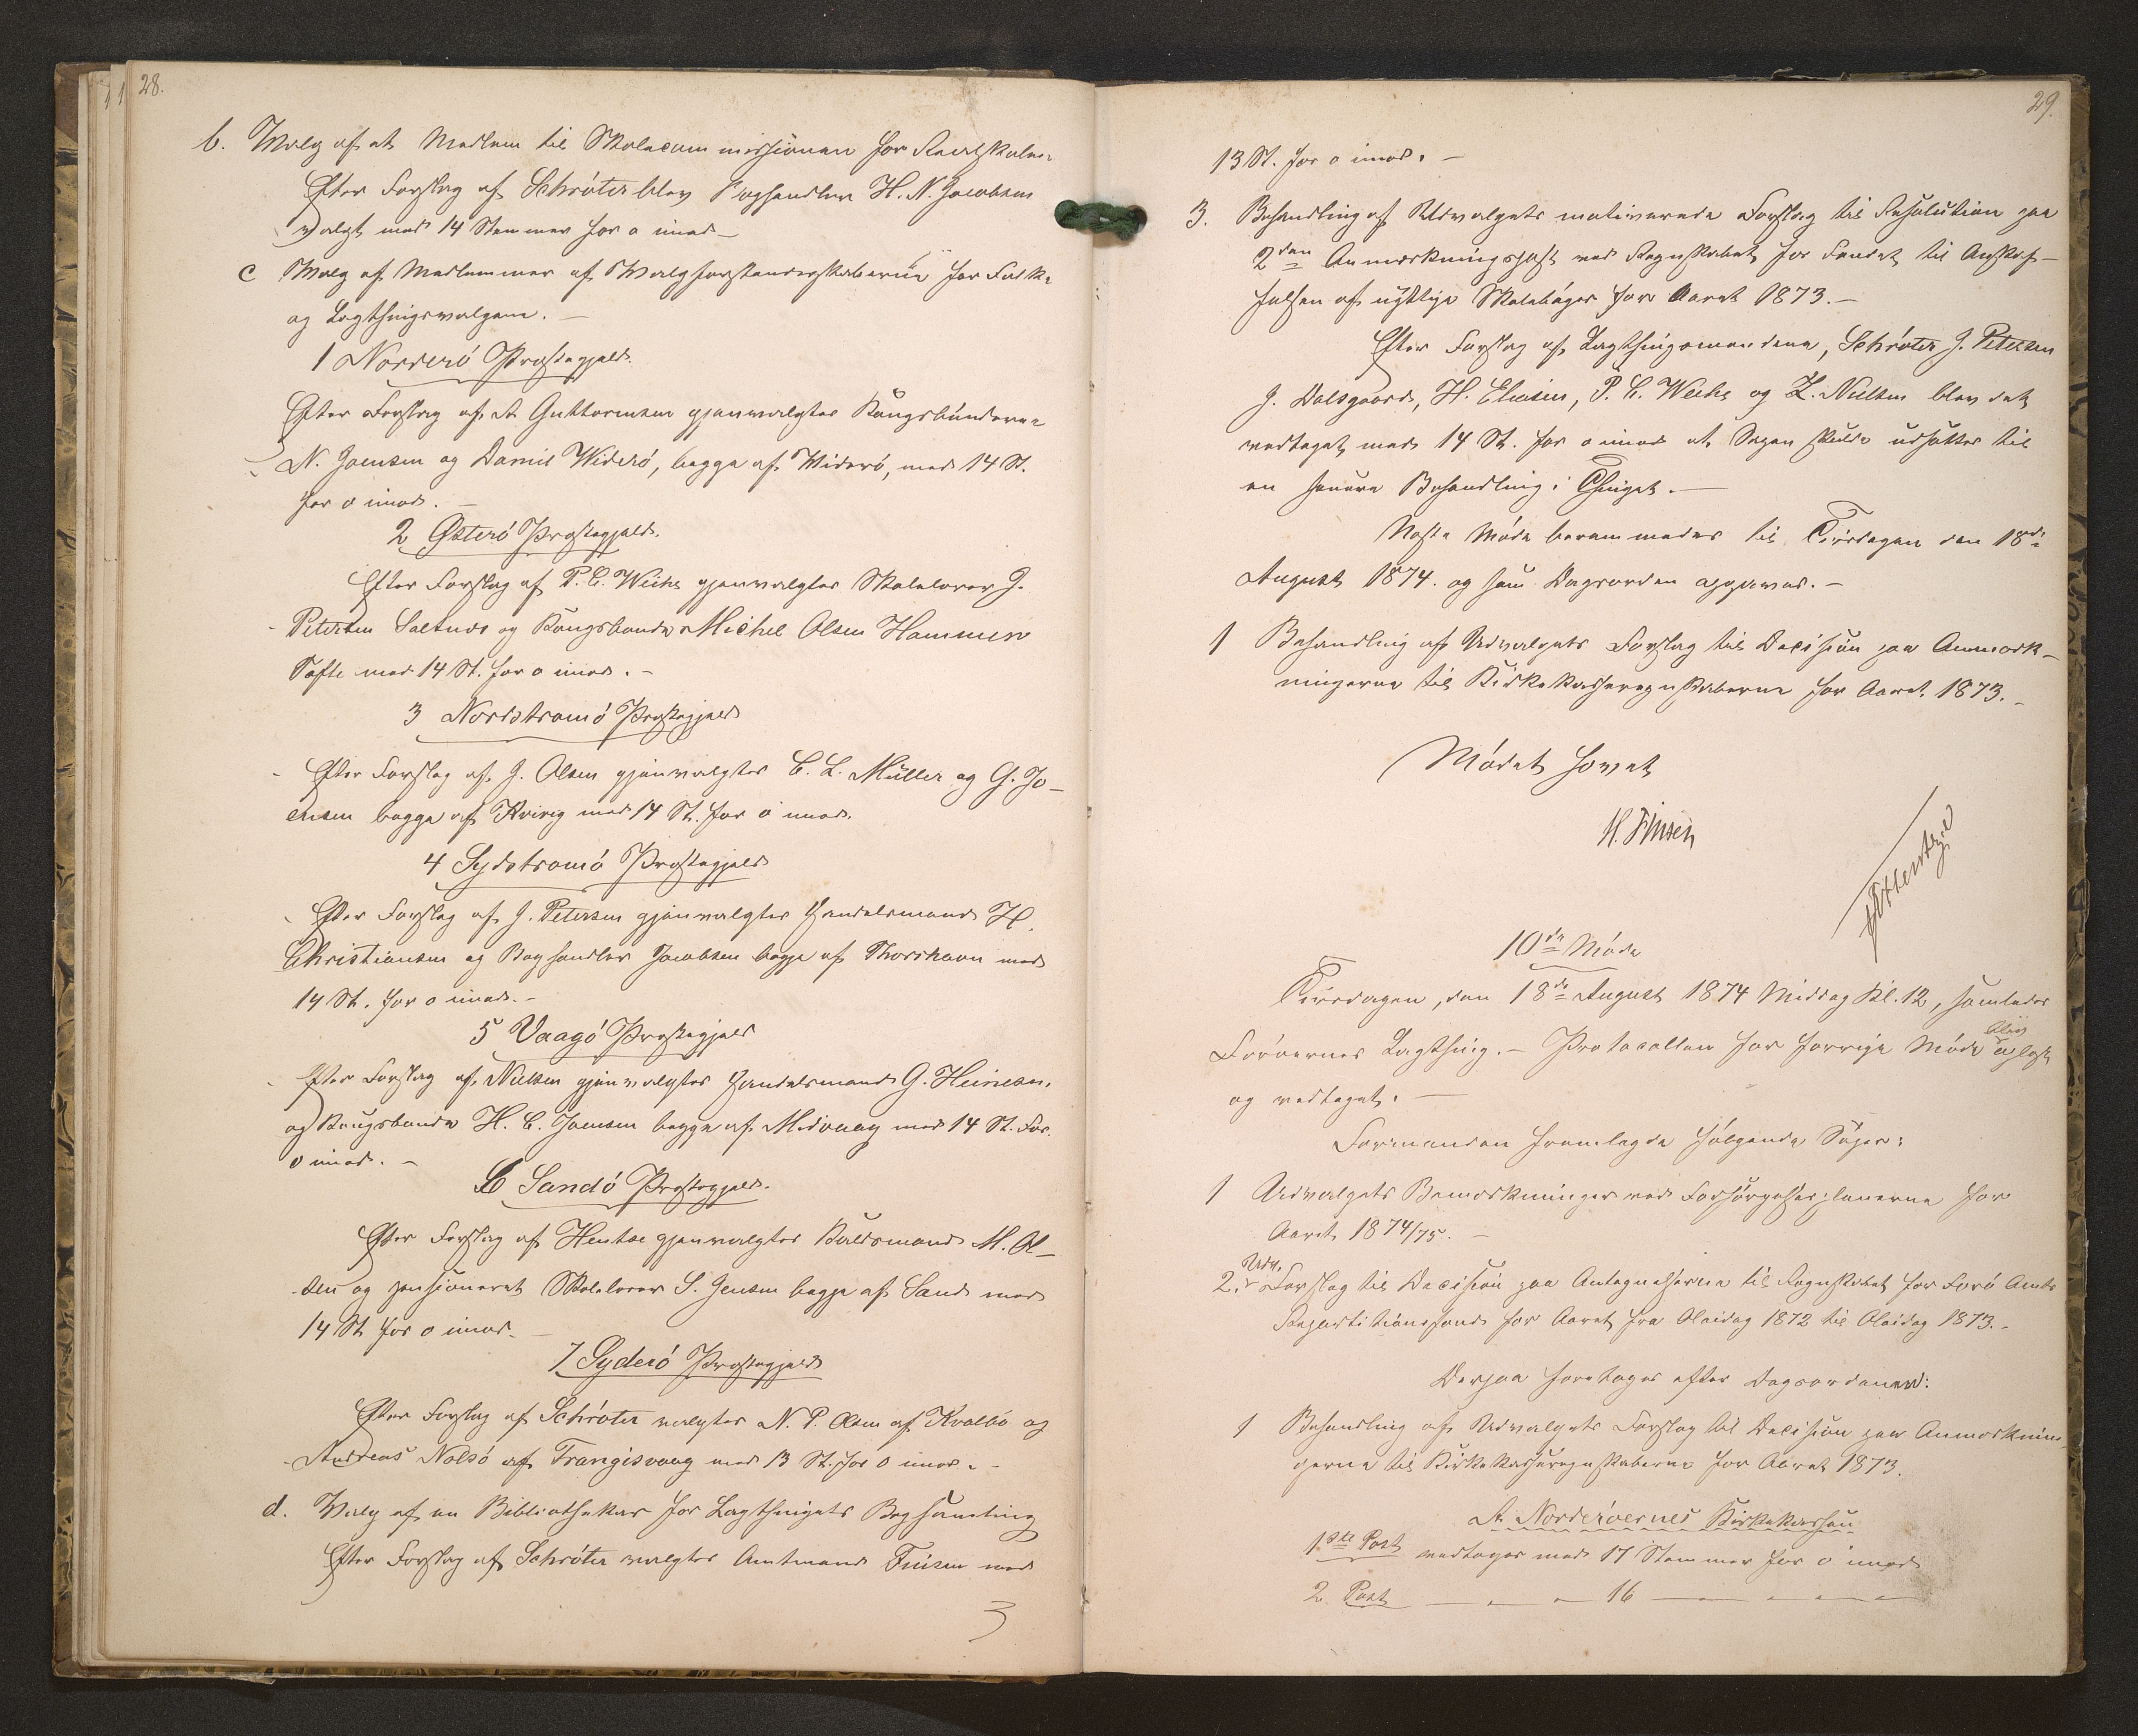 28.
b. Valg af et Medlem til Skolecommissionen for Realskolen.
Efter Forslag af Schröter blev Boghandler H. N. Jacobsen
valgt med 14 Stemmer for 0 imod —
c Valg af Medlemmer af Valgforstanderskaberne for Folke-
og Lagthingsvalgene. —
1 Norderö Præstegjeld.
Efter Forslag af A Guttormsen gjenvalgtes Kongsbönderne
N. Joensen og Daniel Widerö, begge af Widerö, med 14 St.
for 0 imod. —
2 Österö Præstegjeld.
Efter Forslag af P. C. Weihe gjenvalgtes Skolelærer J.
Petersen Saltnæs og Kongsbonde Michel Olsen Hammer
Tofte med 14 St. for 0 imod. —
3 Nordströmö Præstegjeld
Efter Forslag af J. Olsen gjenvalgtes C. L. Müller og G. Jo-
ensen begge af Kvivig med 14 St. for 0 imod.
4 Sydströmö Præstegjeld
Efter Forslag af J. Petersen gjenvalgtes Handelsmand H.
Christiansen og Boghandler Jacobsen begge af Thorshavn med
14 St. for 0 imod. —
5 Vaagö Præstegjeld
Efter Forslag af Nielsen gjenvalgtes Handelsmand G. Heinesen.
og Kongsbonde H. C. Joensen begge af Midvaag med 14 St. for.
0 imod. —
6 Sandö Præstegjeld.
Efter Forslag af Hentze gjenvalgtes M. Ol-
sen og pensioneret Skolelærer S. Jensen begge af Sand med
14 St for 0 imod. —
7 Syderö Præstegjeld
Efter Forslag af Schröter valgtes N. P. Olsen af Kvalbö og
Andreas Nolsö af Trangisvaag med 13 St. for 0 imod. —
d. Valg af en Bibliothekar for Lagthingets Bogsamling
Efter Forslag af Schröter valgtes Amtmand Finsen med
3
29.
13 St. for 0 imod. —
3. Behandling af Udvalgets motiverede Forslag til Resolution paa
2den Anmærkningspost ved Regnskabet for Fondet til Anskaf-
felsen af nyttige Skolebøger for Aaret 1873. —
Efter Forslag af Lagthingsmændene, Schröter J. Petersen
J. Dalsgaard, H. Eliasen, P. C. Weihe og Z. Nielsen blev det
vedtaget med 14 St. for 0 imod at Sagen skulde udsættes til
en senere Behandling i Thinget. —
Næste Møde berammedes til Tirsdagen den 18de
August 1874. og som Dagsorden opgaves. —
1 Behandling af Udvalgets Forslag til Decision paa Anmærk-
ningerne til Kirkekasseregnskaberne for Aaret 1873. —
Mödet hævet
H. Finsen
10de Möde
Tirsdagen, den 18de August 1874 Middag Kl. 12, samledes
Færöernes Lagthing. — Protocollen for forrige Möde blev oplæst
og vedtaget. —
Formanden fremlagde følgende Sager:
1 Udvalgets Bemærkninger ved Forsørgelsesplanerne for
Aaret 1874/75. —
2. Udv. Forslag til Decision paa Antegnelserne til Regnskabet for Færö Amts
Repartitionsfond for Aaret fra Olaidag 1872 til Olaidag 1873. —
Derpaa foretoges efter Dagsordenen:
1 Behandling af Udvalgets Forslag til Decision paa Anmærknin-
gerne til Kirkekasseregnskaberne for Aaret 1873.
A. Norderöernes Kirkekassen
1ste Post vedtoges med 17 Stemmer for 0 imod
2 Post — " — 16 — " " "